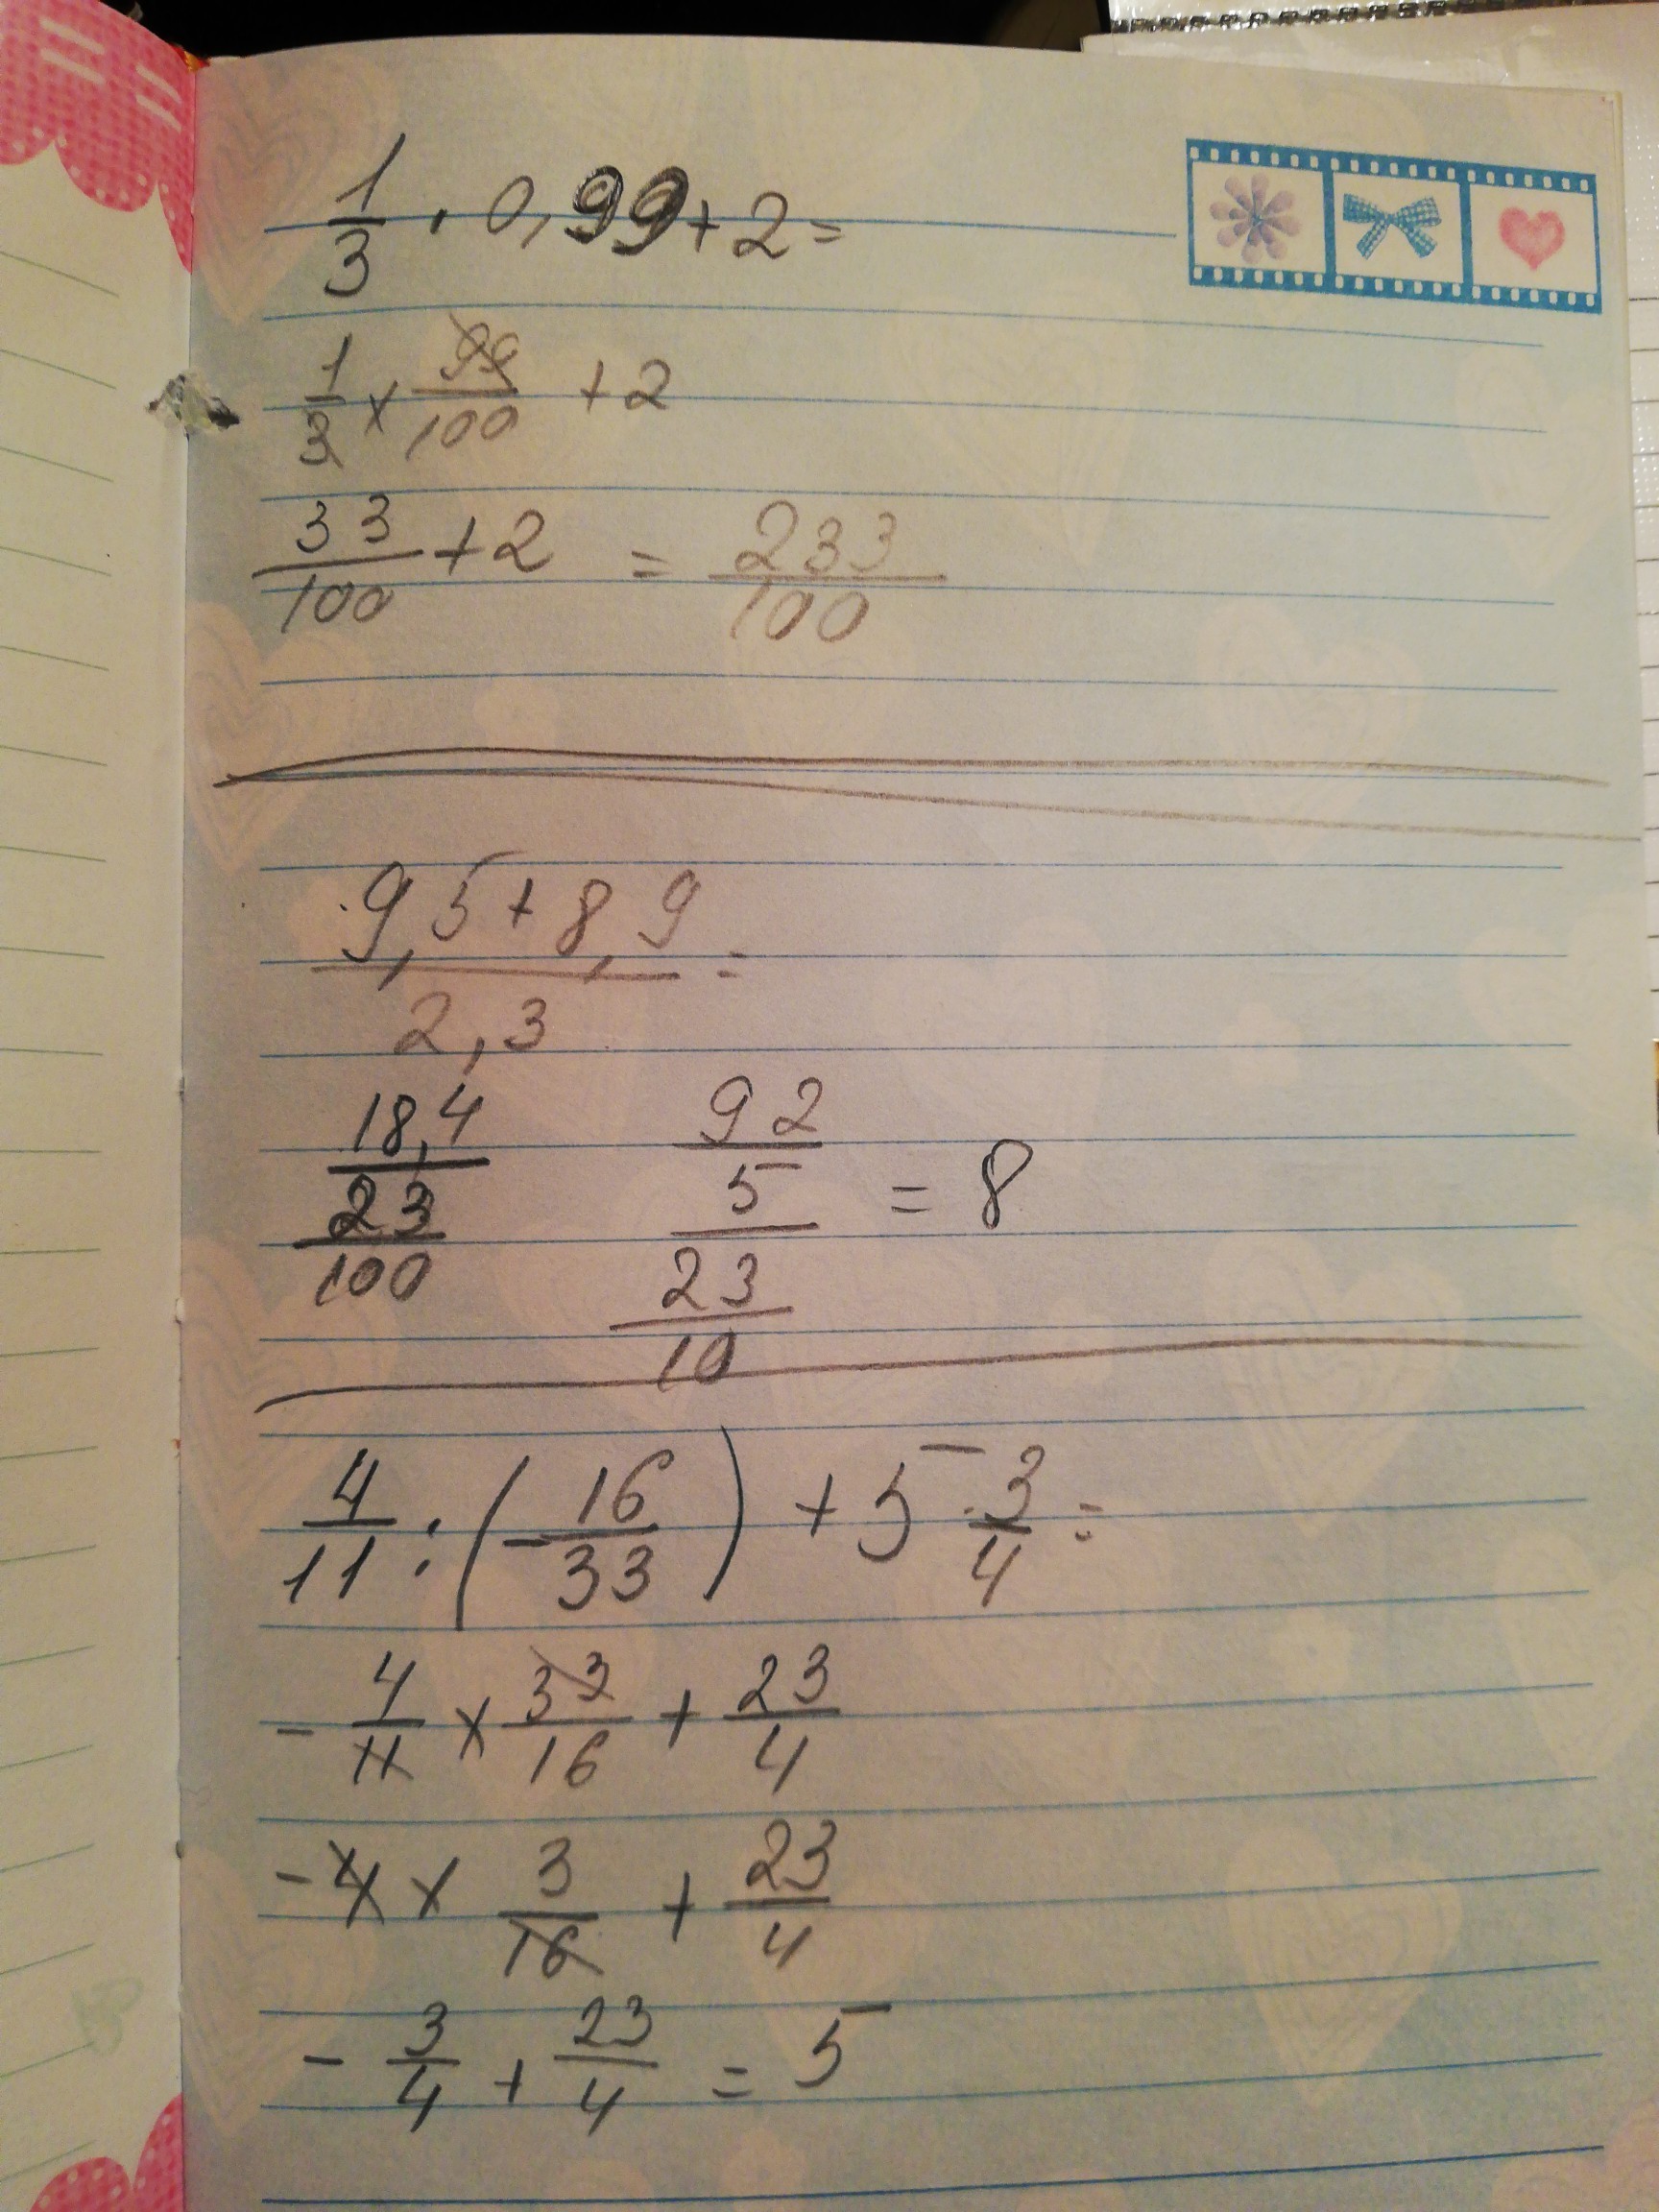 1/3 · 0,99 + 2 =
1/3 × 99/100 + 2
33/100 + 2 = 233/100
9,5 + 8,9 / 2,3 =
18,4 / 23/100    92/5 / 23/10 = 8
4/11 : (- 16/33) + 5 3/4 =
- 4/11 × 33/16 + 23/4
- 4 × 3/16 + 23/4
- 3/4 + 23/4 = 5